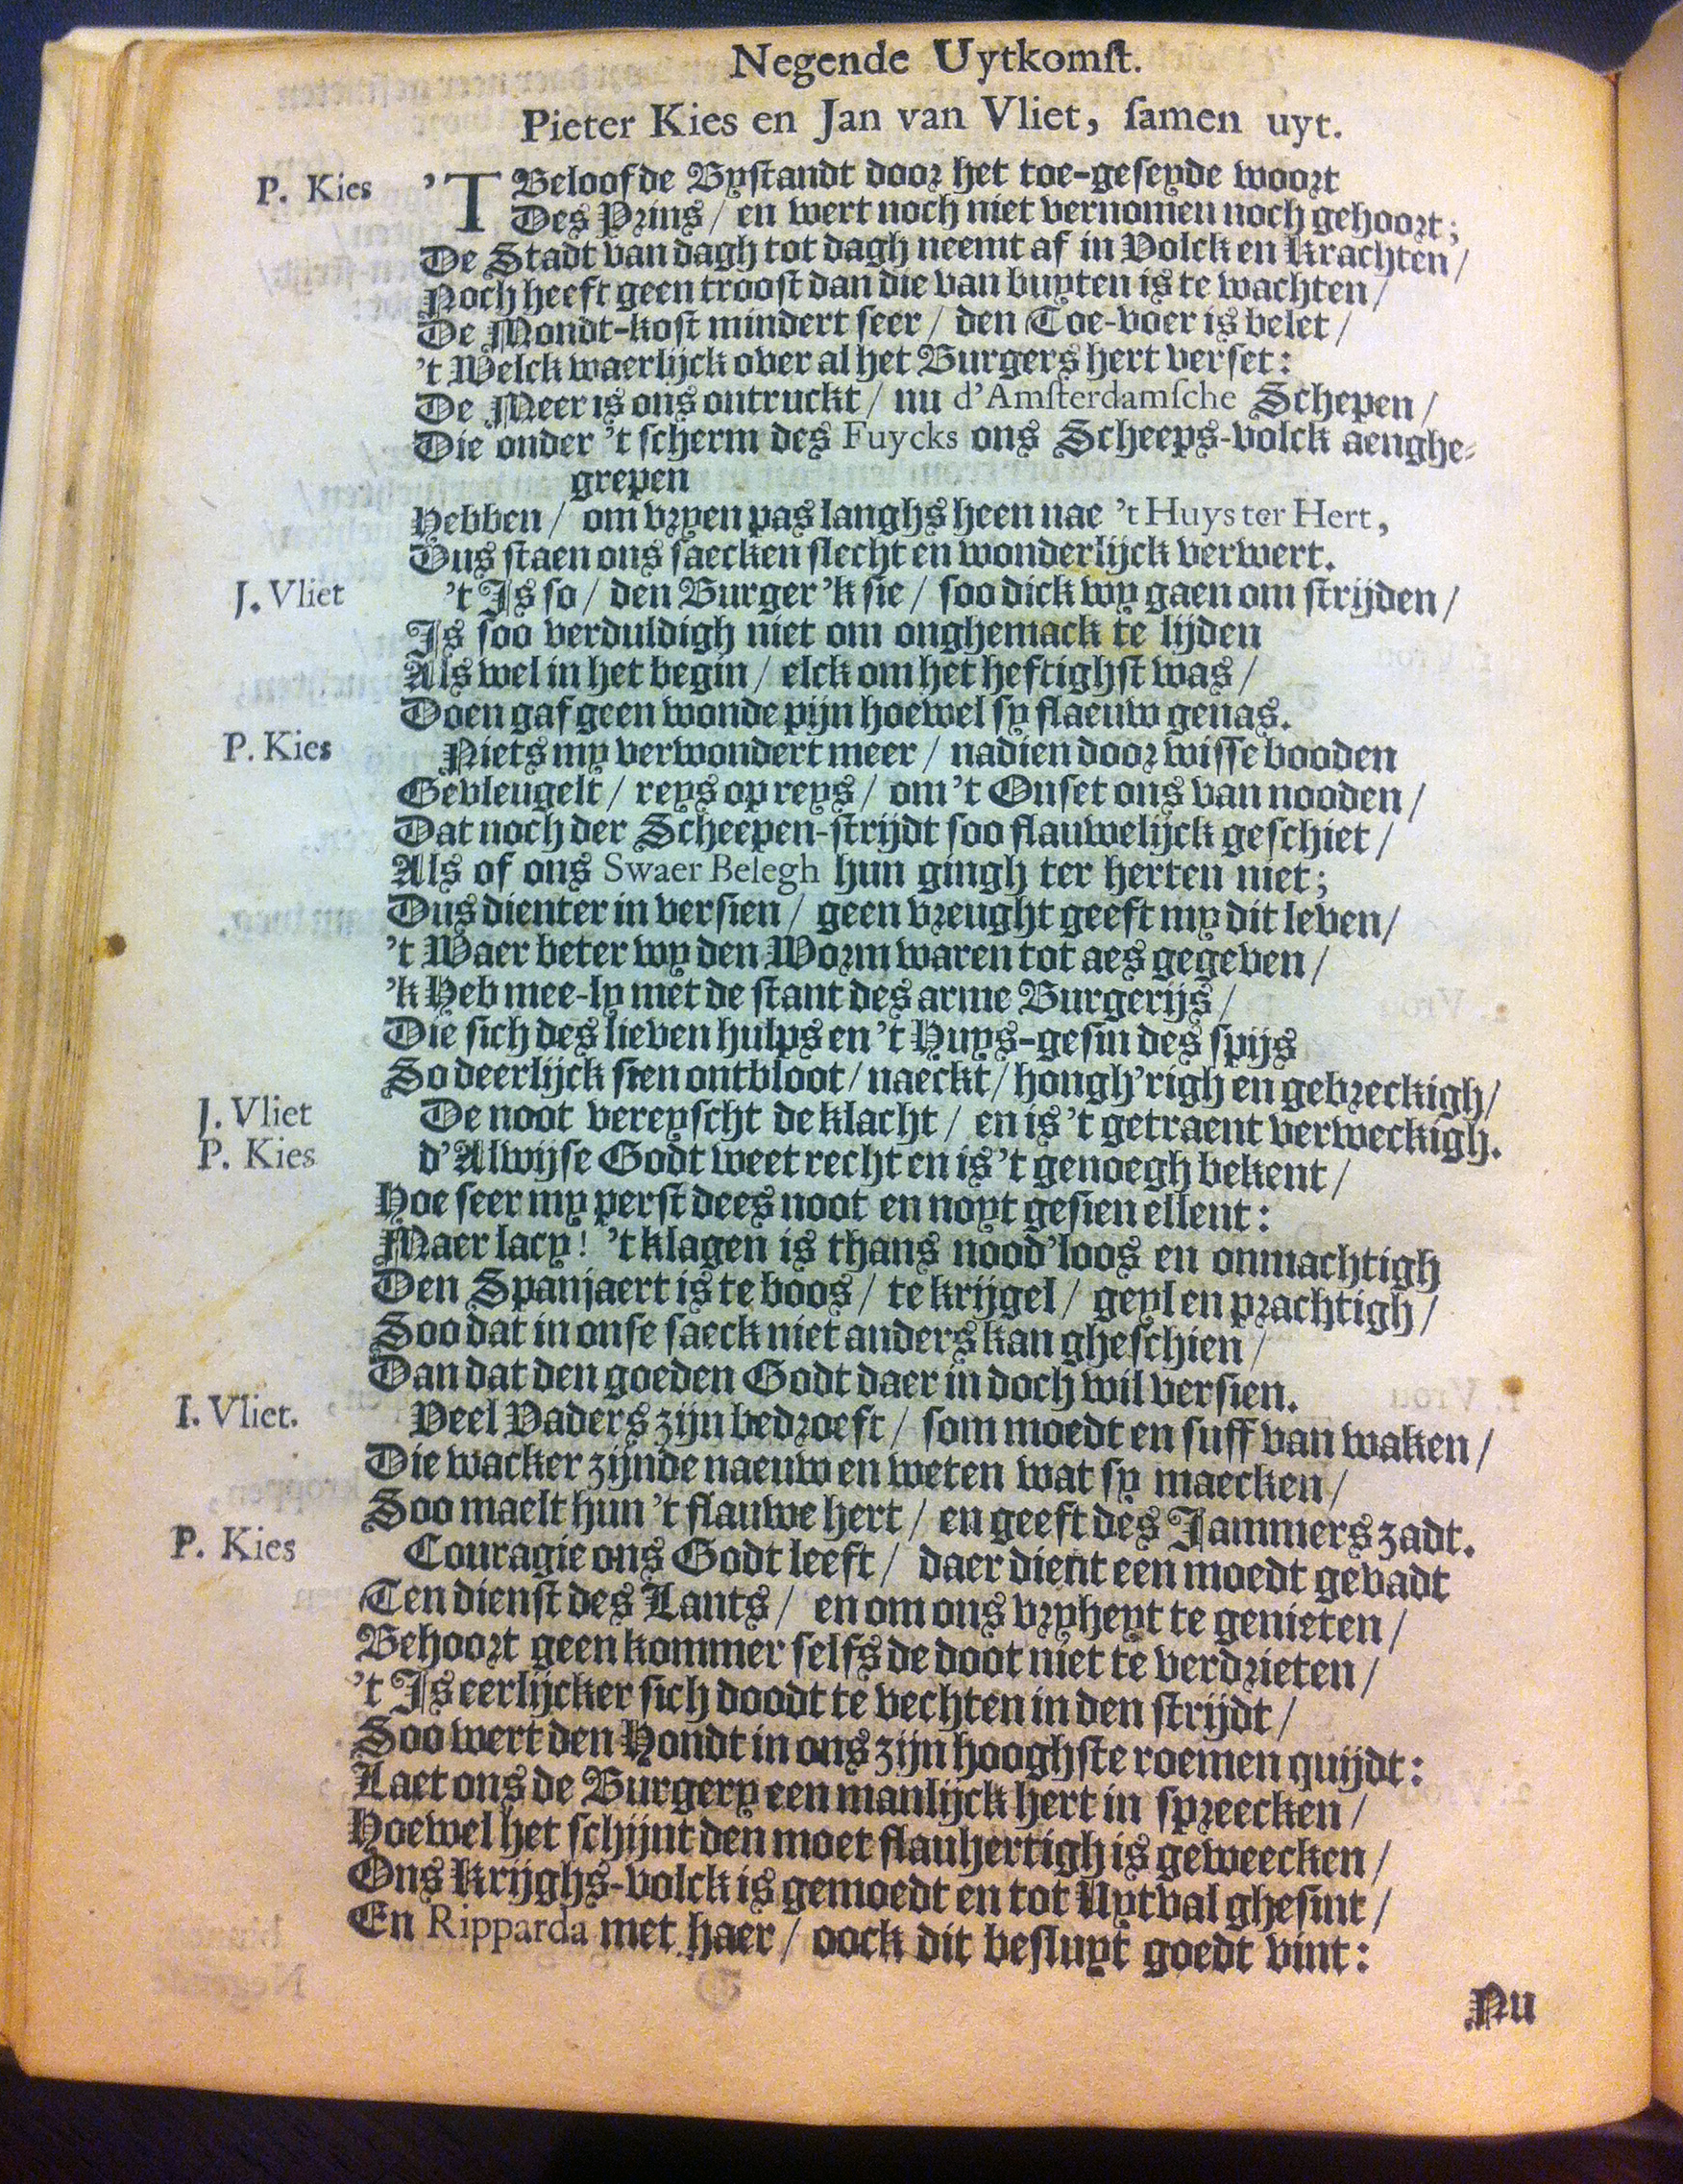 Negende Uytkomſt.
Pieter Kies en Jan van Vliet, ſamen uyt.
P. Kies 'T Beloofde Byſtandt door het toe-geſeyde woort
Des Prins / en wert noch niet vernomen noch gehoort;
De Stadt van dagh tot dagh neemt af in Volck en Krachten /
Noch heeft geen trooſt dan die van buyten is te wachten /
De Mondt-koſt mindert ſeer / den Toe-voer is belet /
't Welck waerlijck over al het Burgers hert verſet:
De Meer is ons ontruckt / nu d'Amſterdamſche Schepen /
Die onder 't ſcherm des Fuycks ons Scheeps-volck aenghe-
grepen
Hebben / om vryen pas langhs heen nae 't Huys ter Hert,
Dus ſtaen ons ſaecken ſlecht en wonderlijck verwert.
J. Vliet 't Is ſo / den Burger 'k ſie / ſoo dick wy gaen om ſtrijden /
Is ſoo verduldigh niet om onghemack te lijden
Als wel in het begin / elck om het heftighſt was /
Doen gaf geen wonde pijn hoewel ſy flaeuw genas.
P. Kies Niets my verwondert meer / nadien door wiſſe booden
Gevleugelt / reys op reys / om 't Onſet ons van nooden /
Dat noch der Scheepen-ſtrijdt ſoo flauwelijck geſchiet /
Als of ons Swaer Belegh hun gingh ter herten niet;
Dus dienter in verſien / geen vreught geeft my dit leven /
't Waer beter wy den Worm waren tot aes gegeven /
'k Heb mee-ly met de ſtant des arme Burgerijs /
Die ſich des lieven hulps en 't Huys-geſin des ſpijs
So deerlijck ſien ontbloot / naeckt / hongh'righ en gebreckigh /
J. Vliet De noot vereyſcht de klacht / en is 't getraent verweckigh.
P. Kies d'Alwijſe Godt weet recht en is 't genoegh bekent /
Hoe ſeer my perſt dees noot en noyt geſien ellent:
Maer lacy! 't klagen is thans nood'loos en onmachtigh
Den Spanjaert is te boos / te krijgel / geyl en prachtigh /
Soo dat in onſe ſaeck niet anders kan gheſchien /
Dan dat den goeden Godt daer in doch wil verſien.
I. Vliet. Veel Vaders zijn bedroeft / ſom moedt en ſuff van waken /
Die wacker zijnde naeuw en weten wat ſy maecken /
Soo maelt hun 't flauwe hert / en geeft des Jammers zadt.
P. Kies Couragie ons Godt leeft / daer dient een moedt gevadt
Ten dienſt des Lants / en om ons vryheyt te genieten /
Behoort geen kommer ſelfs de doot niet te verdrieten /
't Is eerlijcker ſich doodt te vechten in den ſtrijdt /
Soo wert den Hondt in ons zijn hooghſte roemen quijdt:
Laet ons de Burgery een manlijck hert in ſpreecken /
Hoewel het ſchijnt den moet flauhertigh is geweecken /
Ons Krijghs-volck is gemoedt en tot Uytval gheſint /
En Ripparda met haer / oock dit beſluyt goedt vint:
Nu